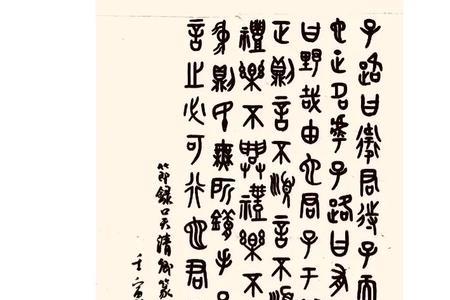 子路曰衛君待子而
也正名乎子路曰有
曰野哉由也君子于
正則言不順言不順
禮樂不興禮樂不
則民無所錯手足
言之必可行也君
節録吳清卿篆
壬寅